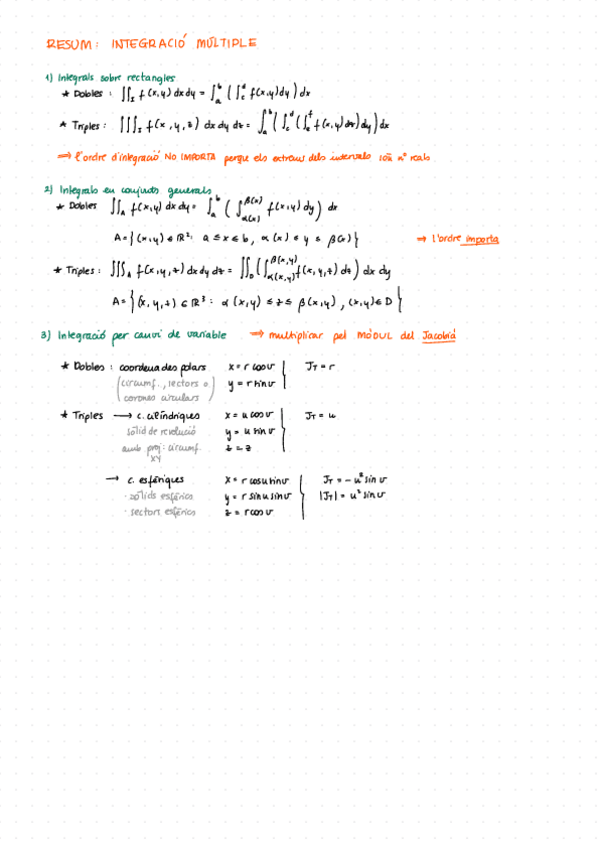 RESUM: INTEGRACIÓ MÚLTIPLE
1) Integrals sobre rectangles
★ Dobles: ∬_I f(x,y) dx dy = ∫_a^b (∫_c^d f(x,y) dy) dx
★ Triples: ∭_I f(x,y,z) dx dy dz = ∫_a^b (∫_c^d (∫_e^f f(x,y) dz) dy) dx
⇒ l'ordre d'integració NO IMPORTA perque els extrems dels intervals són nº reals
2) Integrals en conjunts generals
★ Dobles ∬_A f(x,y) dx dy = ∫_a^b (∫_{α(x)}^{β(x)} f(x,y) dy) dx
A = {(x,y) ∈ ℝ²: a ≤ x ≤ b, α(x) ≤ y ≤ β(x)} ⇒ l'ordre importa
★ Triples: ∭_A f(x,y,z) dx dy dz = ∬_D (∫_{α(x,y)}^{β(x,y)} f(x,y,z) dz) dx dy
A = {(x,y,z) ∈ ℝ³: α(x,y) ≤ z ≤ β(x,y), (x,y) ∈ D}
3) Integració per canvi de variable ⇒ multiplicar pel MÒDUL del Jacobià
★ Dobles: coordenades polars x = r cos v } J_T = r
(circumf., sectors o y = r sin v
corones circulars)
★ Triples → c. cilíndriques x = u cos v } J_T = u
sòlid de revolució y = u sin v
amb proj = circumf. z = z
XY
→ c. esfèriques x = r cos u sin v } J_T = - u² sin v
· sòlids esfèrics y = r sin u sin v |J_T| = u² sin v
· sectors esfèrics z = r cos v